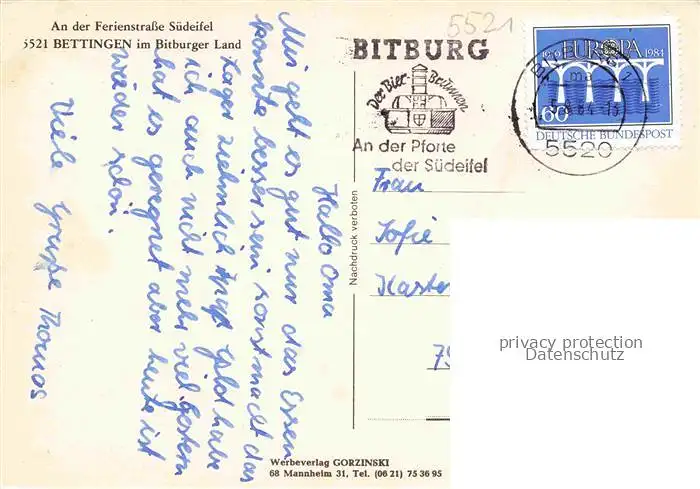 An der Ferienstraße Südeifel
5521 BETTINGEN im Bitburger Land
Hallo Oma
Mir geht es gut nur das Essen
könnte besser sein sonst macht das
Lager ziehmlich Geld habe
ich auch nicht mehr viel gestern
hat es geregnet aber heute ist
wieder schön.
Viele Grüße Thomas
Werbeverlag GORZINSKI
68 Mannheim 31, Tel. (06 21) 75 36 95
Nachdruck verboten
5521
BITBURG
Der Bier-Brunnen
An der Pforte
der Südeifel
1959 EUROPA 1984
60
DEUTSCHE BUNDESPOST
BITBURG 1
ma
84-13
5520
Frau
Sofie
Kaster
75
privacy protection
Datenschutz